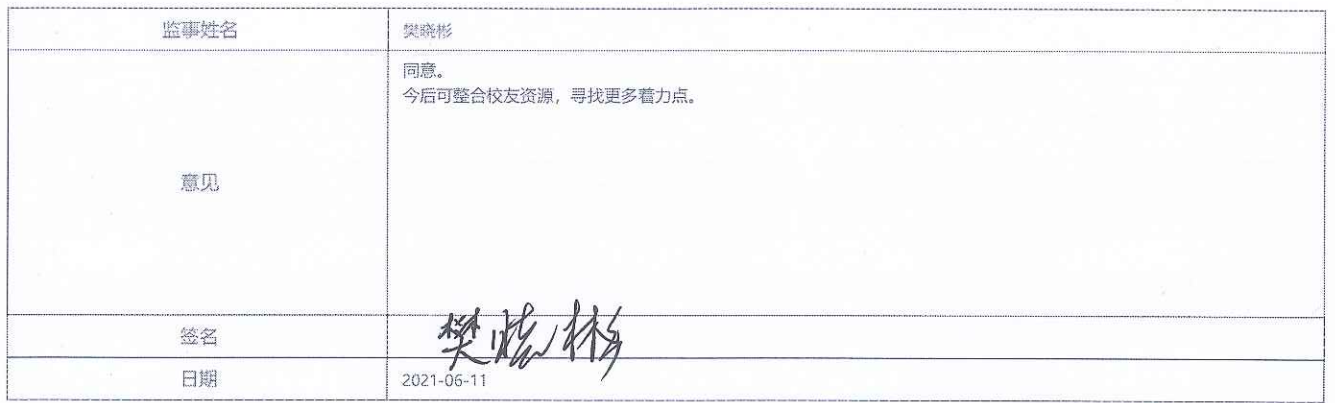 监事姓名 樊晓彬
意见 同意。
今后可整合校友资源，寻找更多着力点。
签名 樊晓彬
日期 2021-06-11